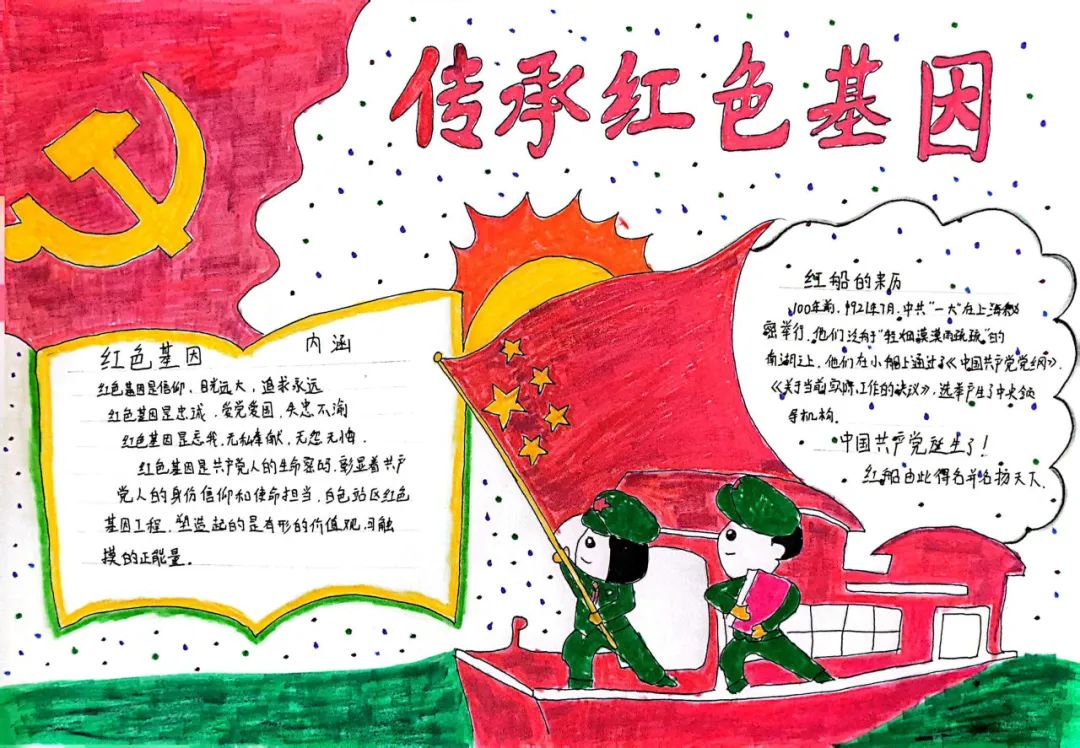 传承红色基因
红色基因 内涵
红色基因是信仰、目光远大,追求永远
红色基因是忠诚,爱党爱国,矢忠不渝
红色基因是忘我,无私奉献,无怨无悔.
红色基因是共产党人的生命密码,彰显着共产
党人的身份信仰和使命担当,白色站区红色
基因工程,塑造起的是有形的价值观,可触
摸的正能量.
红船的来历
100年前,1921年7月,中共“一大”在上海秘
密举行,他们没有“轻烟漠漠雨疏疏”的
南湖之上,他们在小船上通过了《中国共产党党纲》
《关于当前实际工作的决议》,选举产生了中央领
导机构.
中国共产党诞生了!
红船由此得名并名扬天下.